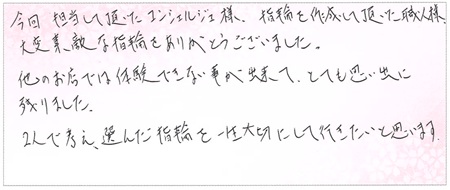 今回 担当して頂いたコンシェルジュ様、指輪を作成して頂いた職人様、
大変素敵な指輪をありがとうございました。
他のお店では体験できない事が出来て、とても思い出に
残りました。
2人で考え、選んだ指輪を一生大切にして行きたいと思います。